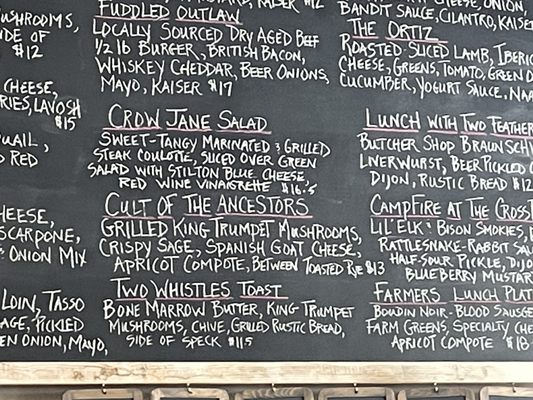 MUSHROOMS,
SIDE OF
$12
CHEESE,
LAVOSH
$15
QUAIL,
RED
CHEESE,
MASCARPONE,
ONION MIX
LOIN, TASSO
PICKLED
ONION, MAYO,
FUDDLED OUTLAW
LOCALLY SOURCED DRY AGED BEEF
1/2 LB BURGER, BRITISH BACON,
WHISKEY CHEDDAR, BEER ONIONS,
MAYO, KAISER $17
CROW JANE SALAD
SWEET-TANGY MARINATED & GRILLED
STEAK COULOTTE, SLICED OVER GREEN
SALAD WITH STILTON BLUE CHEESE,
RED WINE VINAIGRETTE $16.5
CULT OF THE ANCESTORS
GRILLED KING TRUMPET MUSHROOMS,
CRISPY SAGE, SPANISH GOAT CHEESE,
APRICOT COMPOTE, BETWEEN TOASTED RYE $13
TWO WHISTLES TOAST
BONE MARROW BUTTER, KING TRUMPET
MUSHROOMS, CHIVE, GRILLED RUSTIC BREAD,
SIDE OF SPECK $11.5
BANDIT SAUCE, CILANTRO, KAISE
THE ORTIZ
ROASTED SLICED LAMB, IBERIC
CHEESE, GREENS, TOMATO, GREEN O
CUCUMBER, YOGURT SAUCE, NAA
LUNCH WITH TWO FEATHER
BUTCHER SHOP BRAUNSCHW
LIVERWURST, BEER PICKLED
DIJON, RUSTIC BREAD $12
CAMPFIRE AT THE CROSS
LIL' ELK & BISON SMOKIES,
RATTLESNAKE-RABBIT SAU
HALF-SOUR PICKLE, DIJO
BLUEBERRY MUSTAR
FARMERS LUNCH PLAT
BOUDIN NOIR - BLOOD SAUSAGE
FARM GREENS, SPECIALTY CHEE
APRICOT COMPOTE $18